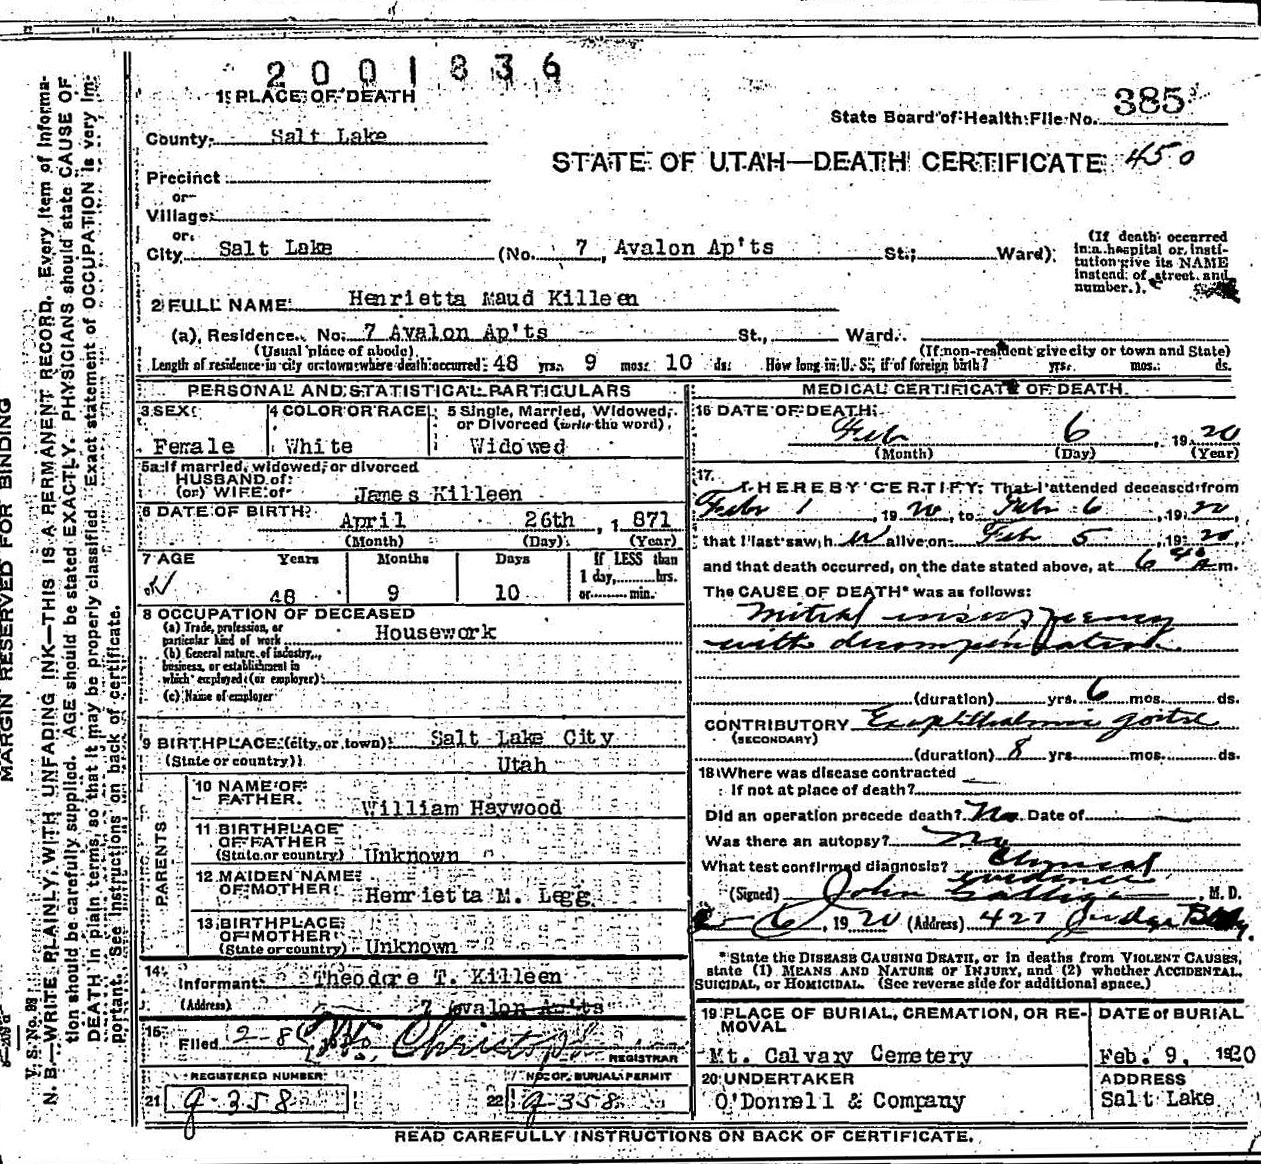 2001836
1 PLACE OF DEATH
State Board of Health File No. 385
County Salt Lake
STATE OF UTAH—DEATH CERTIFICATE 450
Precinct
or
Village
or
City Salt Lake (No. 7, Avalon Ap'ts St.; Ward)
(If death occurred in a hospital or institution give its NAME instead of street and number.)
2 FULL NAME Henrietta Maud Killeen
(a) Residence. No. 7 Avalon Ap'ts St., Ward.
(Usual place of abode) (If non-resident give city or town and State)
Length of residence in city or town where death occurred 48 yrs. 9 mos. 10 ds. How long in U. S., if of foreign birth? yrs. mos. ds.
PERSONAL AND STATISTICAL PARTICULARS
3 SEX Female
4 COLOR OR RACE White
5 Single, Married, Widowed, or Divorced (write the word) Widowed
5a If married, widowed, or divorced
HUSBAND of
(or) WIFE of James Killeen
6 DATE OF BIRTH April 26th, 1871
(Month) (Day) (Year)
7 AGE Years Months Days If LESS than
1 day, hrs.
or min.
48 9 10
8 OCCUPATION OF DECEASED
(a) Trade, profession, or
particular kind of work Housework
(b) General nature of industry,
business, or establishment in
which employed (or employer)
(c) Name of employer
9 BIRTHPLACE (city or town) Salt Lake City
(State or country) Utah
PARENTS
10 NAME OF FATHER William Haywood
11 BIRTHPLACE OF FATHER (State or country) Unknown
12 MAIDEN NAME OF MOTHER Henrietta M. Legg
13 BIRTHPLACE OF MOTHER (State or country) Unknown
14 Informant Theodore T. Killeen
(Address) 7 Avalon Ap'ts
15 Filed 2-8
REGISTRAR
REGISTERED NUMBER
21 g-358
NO. OF BURIAL PERMIT
22 g-358
MEDICAL CERTIFICATE OF DEATH
16 DATE OF DEATH
Feb 6, 1920
(Month) (Day) (Year)
17
I HEREBY CERTIFY, That I attended deceased from
Feb 1, 1920, to Feb 6, 1920,
that I last saw h alive on Feb 5, 1920,
and that death occurred, on the date stated above, at 6 40 a m.
The CAUSE OF DEATH* was as follows:
Mitral insufficiency
with decompensation
(duration) yrs. 6 mos. ds.
CONTRIBUTORY Exophthalmic goitre
(SECONDARY)
(duration) 8 yrs. mos. ds.
18 Where was disease contracted
If not at place of death?
Did an operation precede death? No Date of
Was there an autopsy? No
What test confirmed diagnosis? Clinical
evidence
(Signed) John M. D.
2-6, 1920 (Address) 427 Judge Bldg.
* State the DISEASE CAUSING DEATH, or in deaths from VIOLENT CAUSES,
state (1) MEANS AND NATURE OF INJURY, and (2) whether ACCIDENTAL,
SUICIDAL, or HOMICIDAL. (See reverse side for additional space.)
19 PLACE OF BURIAL, CREMATION, OR REMOVAL
Mt. Calvary Cemetery
DATE of BURIAL
Feb. 9, 1920
20 UNDERTAKER
O'Donnell & Company
ADDRESS
Salt Lake
READ CAREFULLY INSTRUCTIONS ON BACK OF CERTIFICATE.
MARGIN RESERVED FOR BINDING
V. S. No. 98
N. B.—WRITE PLAINLY, WITH UNFADING INK—THIS IS A PERMANENT RECORD. Every item of informa-
tion should be carefully supplied. AGE should be stated EXACTLY. PHYSICIANS should state CAUSE OF
DEATH in plain terms, so that it may be properly classified. Exact statement of OCCUPATION is very im-
portant. See instructions on back of certificate.